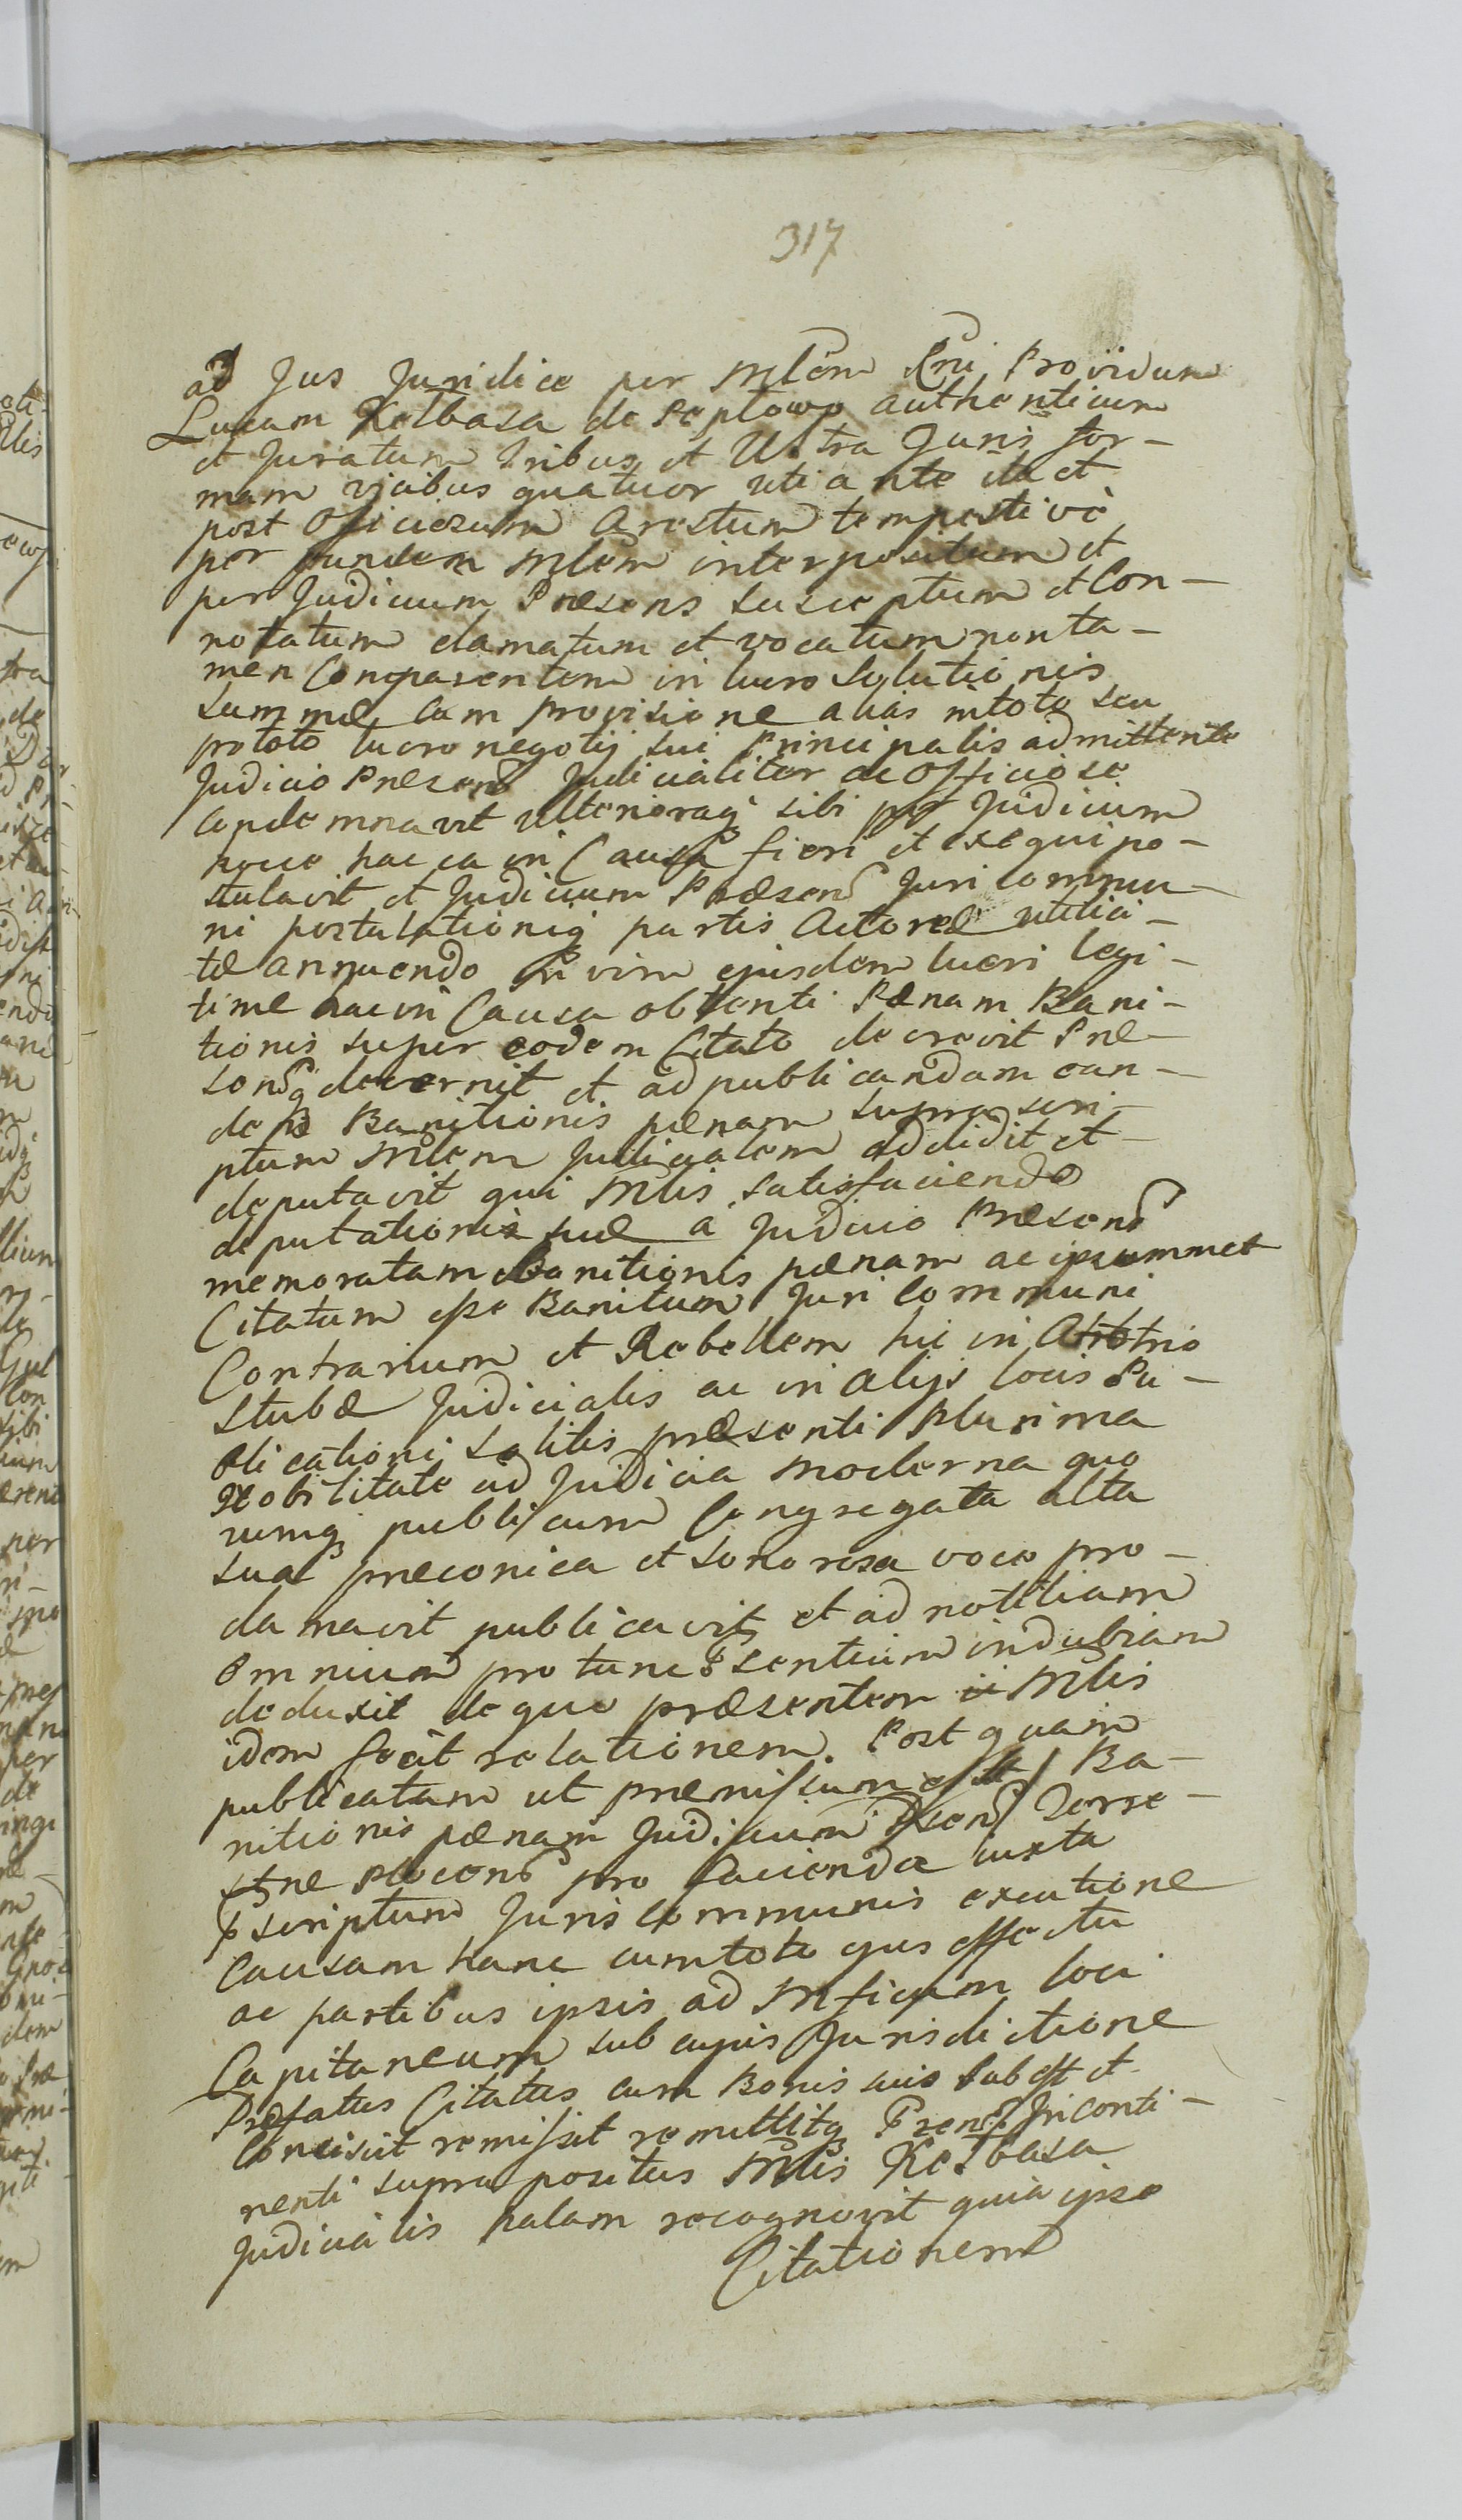 317
ad Jus Juridice per Mlem Rni Providum
Lucam Kełbasa de Septowo authenticum
et Juratum tribus et Ultra Juris for-
mam vicibus quatuor uti ante ita et
post Officiosum Arestum tempestivè
per eundem Mlem interpositum et
per Judicium Præsens susceptum et Con-
notatum clamatum et vocatum non ta-
men Comparentem in lucro Solutionis
summæ Cum provisione alias in toto seu
pro toto lucro negotij sui Principalis admittente
Judicio Præsens Judicialiter ac Officiose
Condemnavit ulterioraq sibi per Judicium
hocce hacca in Causa fieri et exequi po-
stulavit et Judicium Præsens Juri commu-
ni postulationiq partis Actoreæ utilici-
tæ annuendo in vim ejusdem lucri legi-
time hac in Causa obtenti Pænam Bani-
tionis super eodem Citato decrevit Præ-
sensq decernit et ad publicandam ean-
dem Banitionis pænam supra scri-
ptum Mlem Judicialem addidit et
deputavit qui Mlis satisfaciendo
deputationis suæ a Judicio Præsens
memoratam Banitionis pænam ac ipsummet
Citatum esse Banitum Juri Communi
Contrarium et Rebellem hic in Atrio
Stubæ Judicialis ac in alijs locis Pu-
blicationi solitis præsenti Plurima
Nobilitate ad Judicia moderna quo
rumq publicum Congregata alta
sua præconica et sonorosa voce pro-
clamavit publicavit et ad notitiam
Omnium pro tunc Psentium indubiam
deduxit de quo præsentem Mlis
idem fecit relationem. Post quam
publicatam ut præmissum est Ba-
nitionis pænam Judicium Psens Terre-
stre pro facienda iuxta
Pscriptum Juris Communis executione
Causam hanc cum toto ejus effectu
ac partibus ipsis ad Mficum loci
Capitaneum sub cujus Jurisdictione
Præfatus Citatus cum Bonis suis subest et
Consistit remisit remittitq Psens Inconti-
nenti supra positus Mlis Kełbasa
Judicialis palam recognovit quia ipse
Citationem